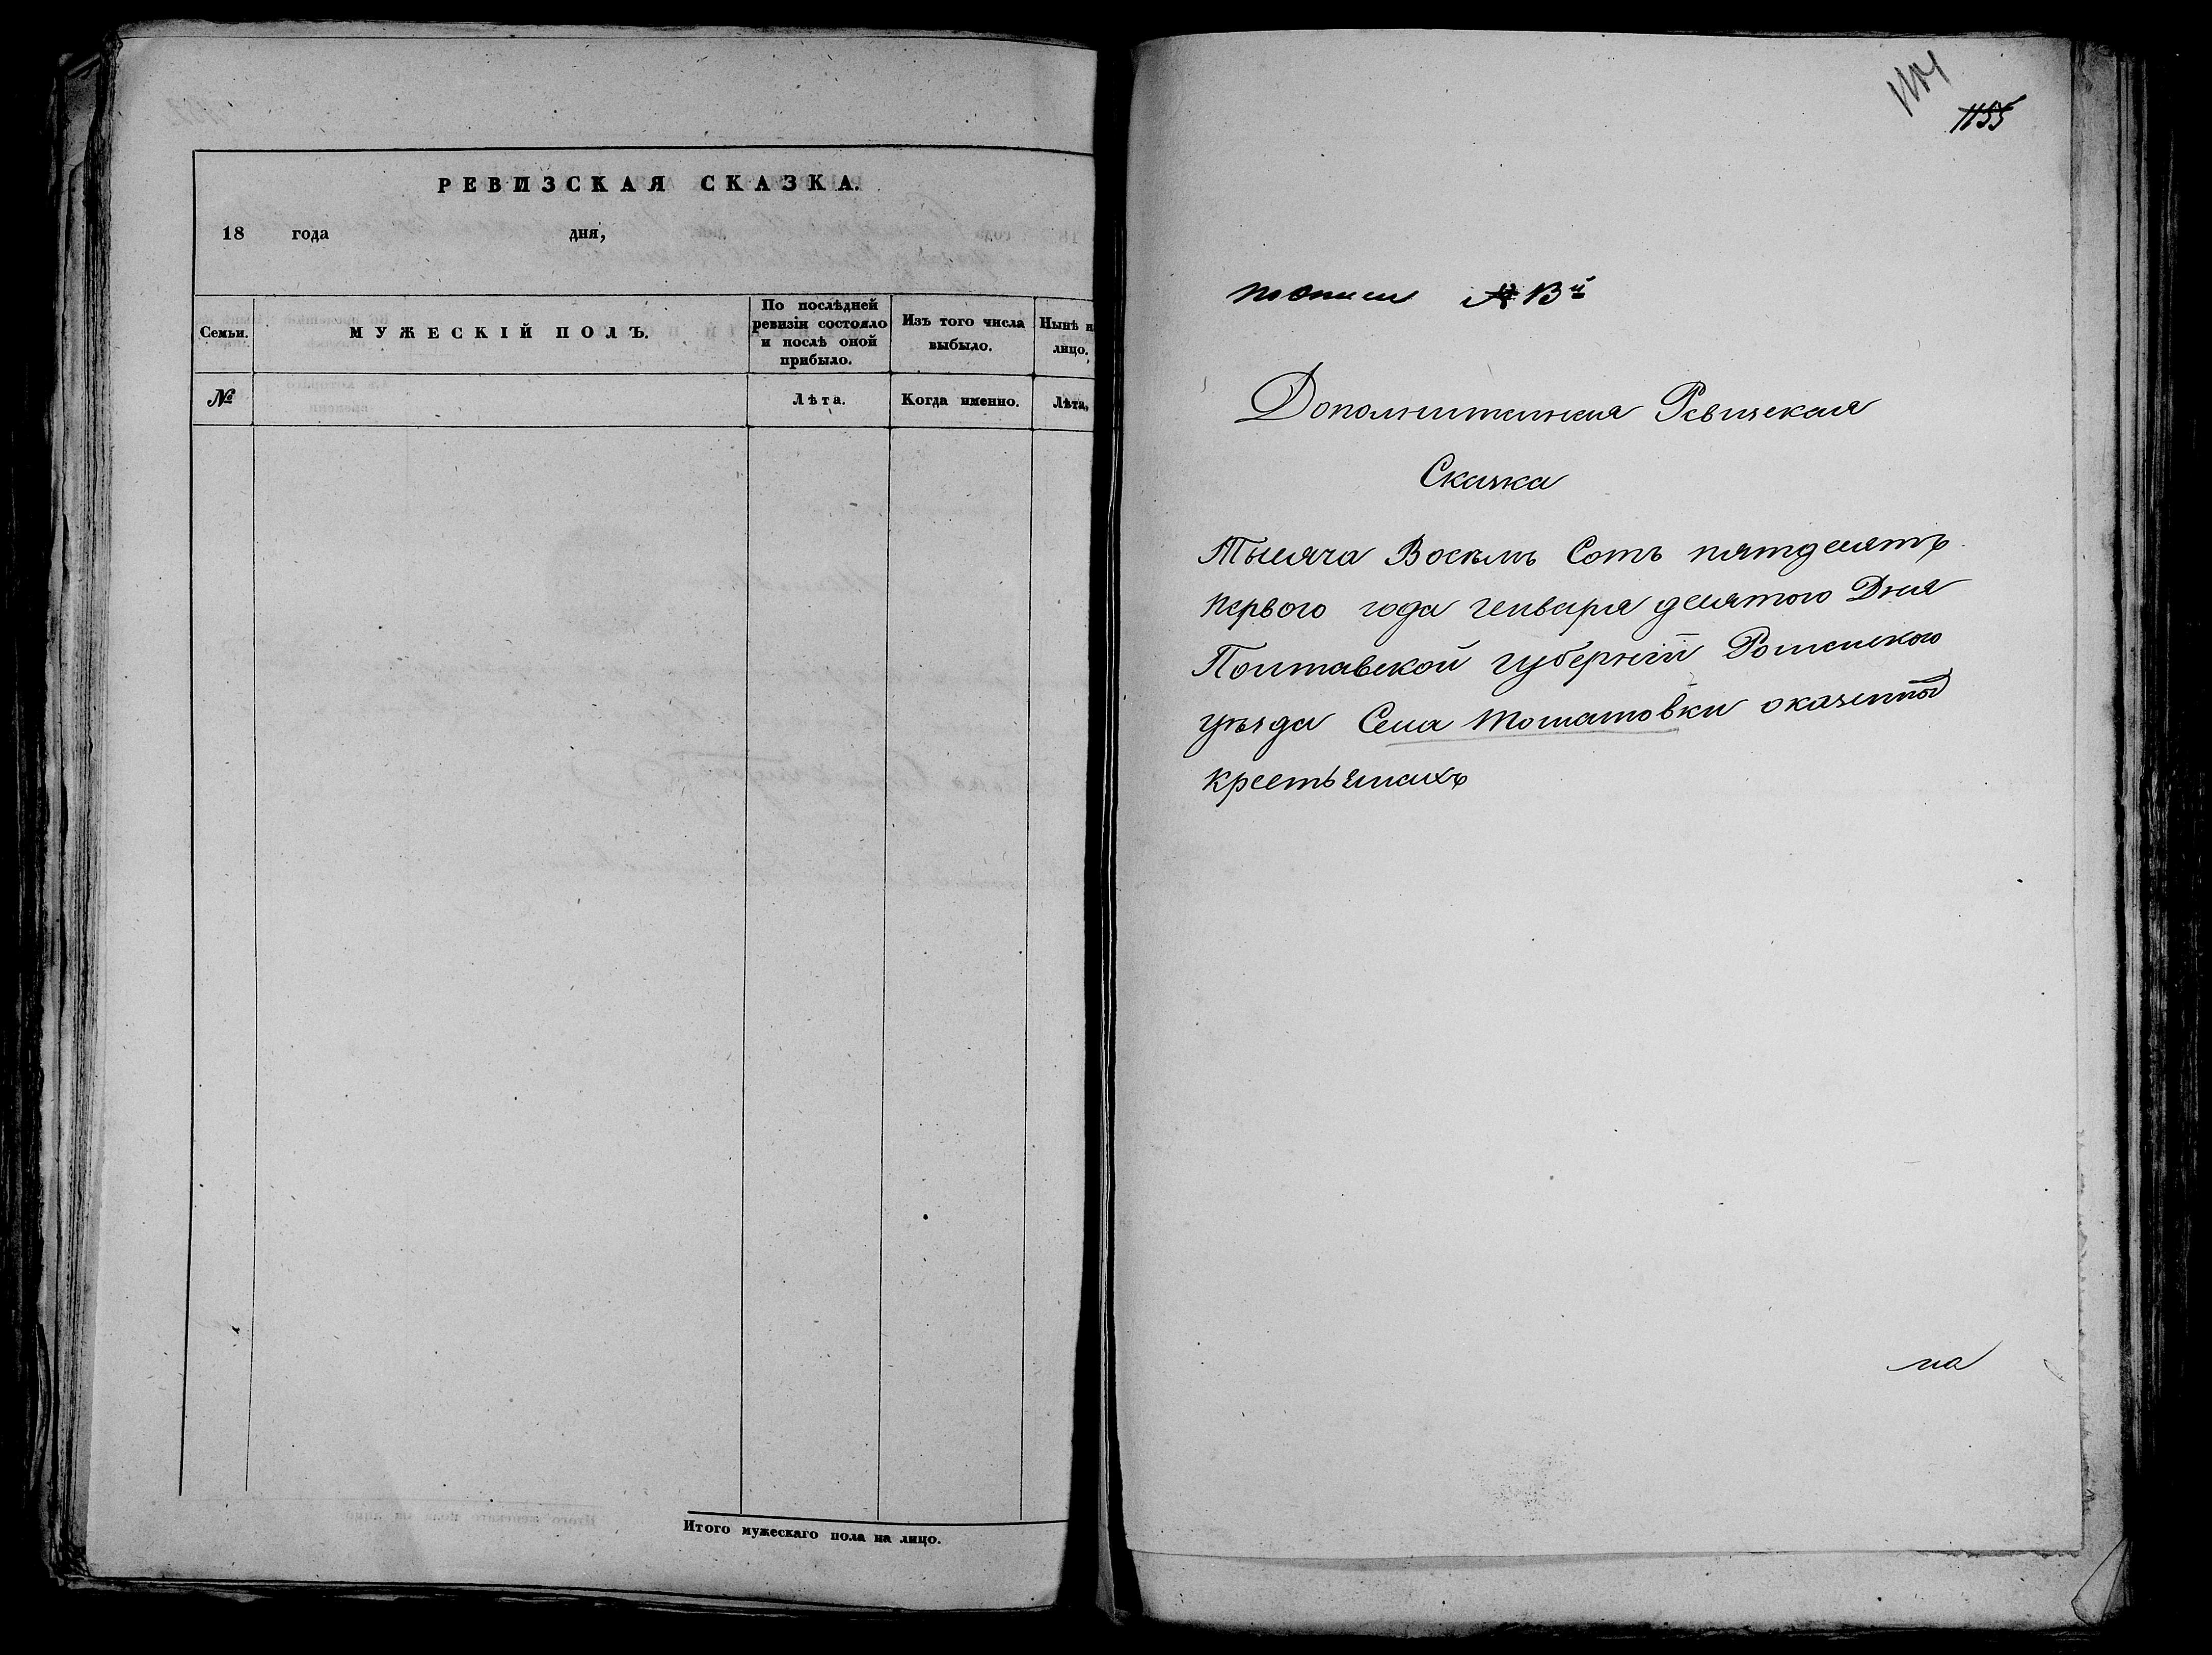 РЕВИЗСКАЯ СКАЗКА.
18 года дня,
Семьи.
МУЖЕСКІЙ ПОЛЪ.
По послѣдней
ревизіи состояло
и послѣ оной
прибыло.
Изъ того числа
выбыло.
Нынѣ н
лицо.
№
Лѣта.
Когда именно.
Лѣта,
Итого мужескаго пола на лицо.
1155
по описи № 13й
Дополнительная Ревизская
Сказка
Тысяча Восемь Сотъ пятдесятъ
первого года генваря десятого Дня
Полтавской губерніи Роменского
уѣзда Села Томашовки оказенных
крестьянахъ
на